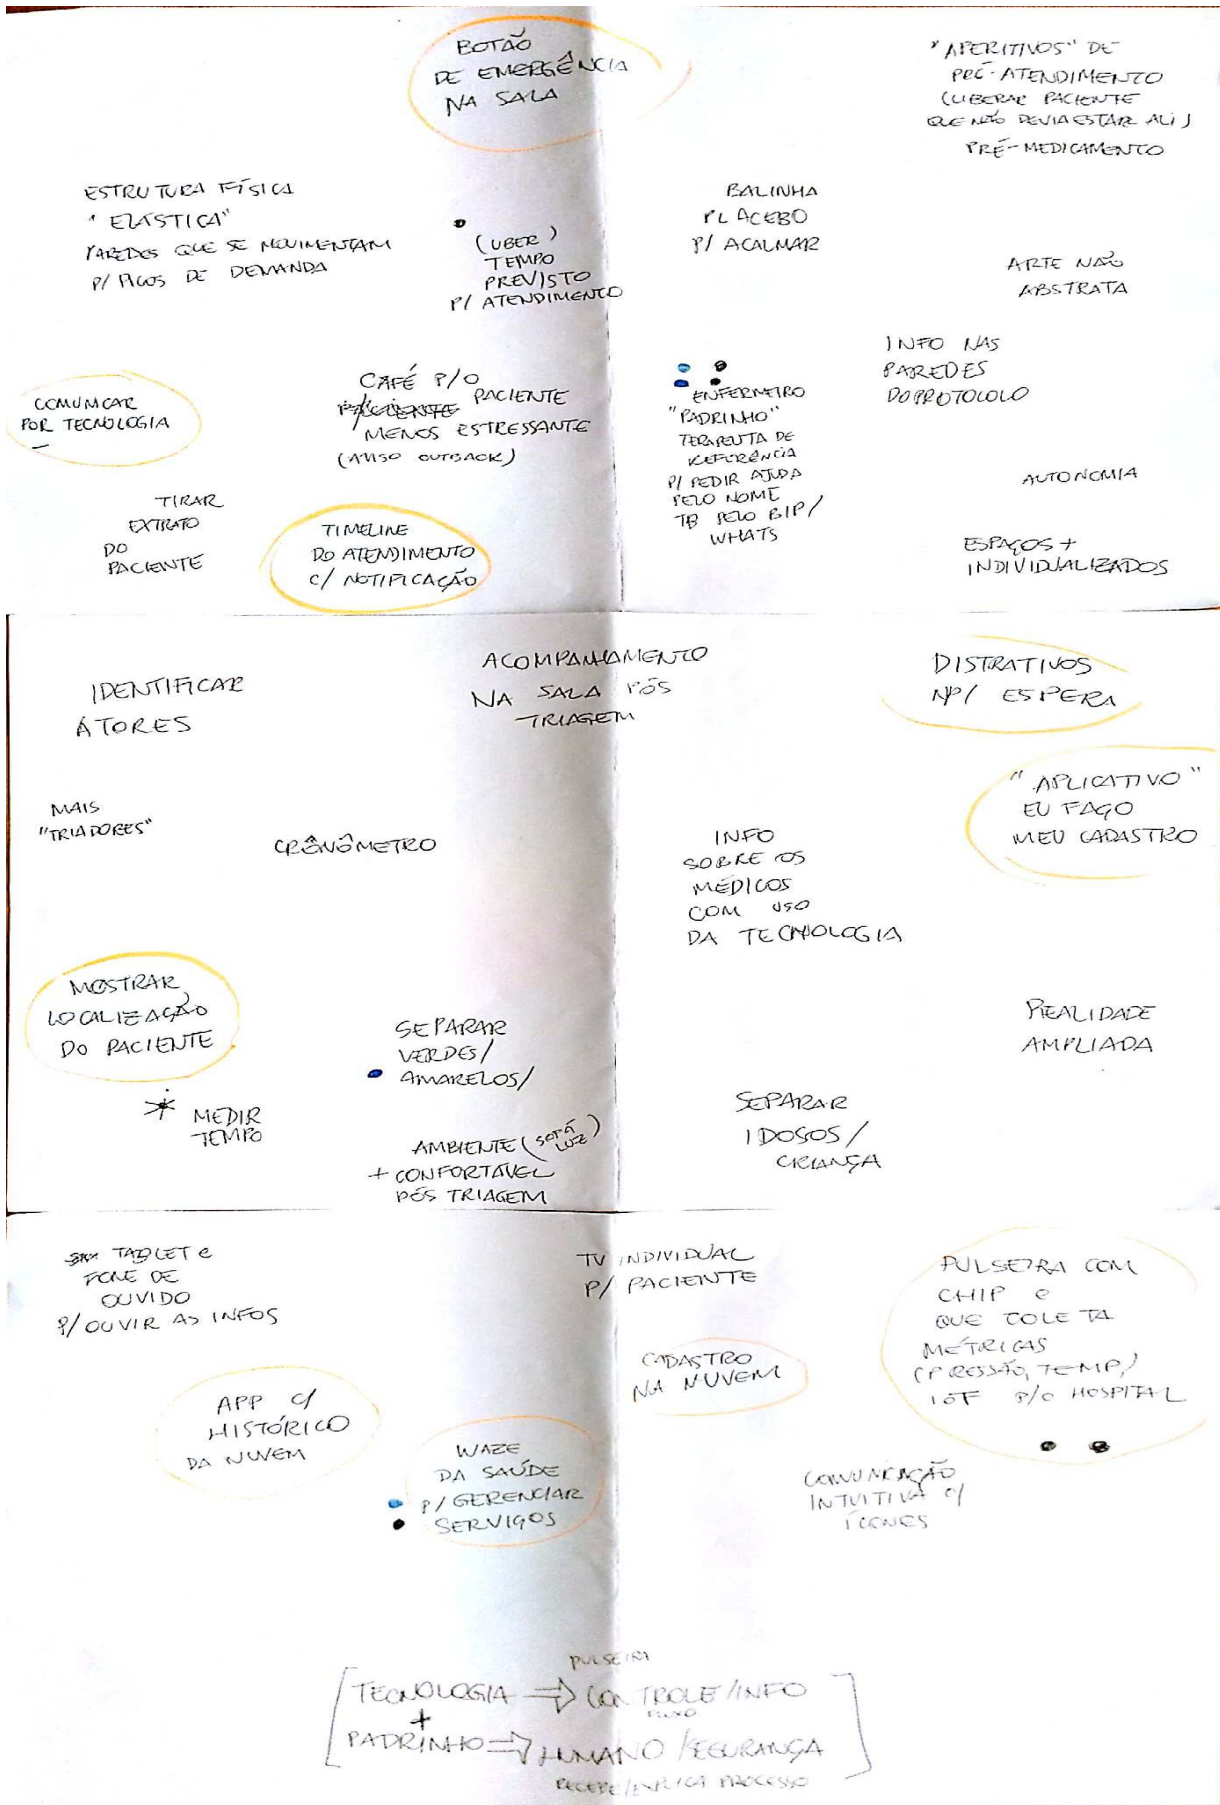 BOTÃO
DE EMERGÊNCIA
NA SALA
"APERITIVOS" DE
PRÉ-ATENDIMENTO
(LIBERAR PACIENTE
QUE NÃO DEVIA ESTAR ALI)
PRÉ-MEDICAMENTO
ESTRUTURA FÍSICA
"ELÁSTICA"
PAREDES QUE SE MOVIMENTAM
P/ PICOS DE DEMANDA
(UBER)
TEMPO
PREVISTO
P/ ATENDIMENTO
BALINHA
PLACEBO
P/ ACALMAR
ARTE NÃO
ABSTRATA
INFO NAS
PAREDES
DO PROTOCOLO
COMUNICAR
POR TECNOLOGIA
CAFÉ P/O
PACIENTE PACIENTE
MENOS ESTRESSANTE
(AVISO OUTBACK)
ENFERMEIRO
"PADRINHO"
TERAPEUTA DE
REFERÊNCIA
P/ PEDIR AJUDA
PELO NOME
TB PELO BIP/
WHATS
AUTONOMIA
TIRAR
EXTRATO
DO
PACIENTE
TIMELINE
DO ATENDIMENTO
C/ NOTIFICAÇÃO
ESPAÇOS +
INDIVIDUALIZADOS
IDENTIFICAR
ATORES
ACOMPANHAMENTO
NA SALA PÓS
TRIAGEM
DISTRATIVOS
P/ ESPERA
MAIS
"TRIADORES"
CRÔNÔMETRO
INFO
SOBRE OS
MÉDICOS
COM USO
DA TECNOLOGIA
"APLICATIVO"
EU FAÇO
MEU CADASTRO
MOSTRAR
LOCALIZAÇÃO
DO PACIENTE
MEDIR
TEMPO
SEPARAR
VERDES/
AMARELOS/
REALIDADE
AMPLIADA
SEPARAR
IDOSOS/
CRIANÇA
AMBIENTE (SOFÁ LUZ)
+ CONFORTÁVEL
PÓS TRIAGEM
TABLET e
FONE DE
OUVIDO
P/ OUVIR AS INFOS
TV INDIVIDUAL
P/ PACIENTE
PULSEIRA COM
CHIP e
QUE COLETA
MÉTRICAS
(PRESSÃO, TEMP,)
IOT P/O HOSPITAL
APP C/
HISTÓRICO
DA NUVEM
CADASTRO
NA NUVEM
WAZE
DA SAÚDE
P/ GERENCIAR
SERVIÇOS
COMUNICAÇÃO
INTUITIVA C/
ÍCONES
PULSEIRA
TECNOLOGIA ⇒ CONTROLE/INFO
FLUXO
+
PADRINHO ⇒ HUMANO/SEGURANÇA
RECEBE/EXPLICA PROCESSO